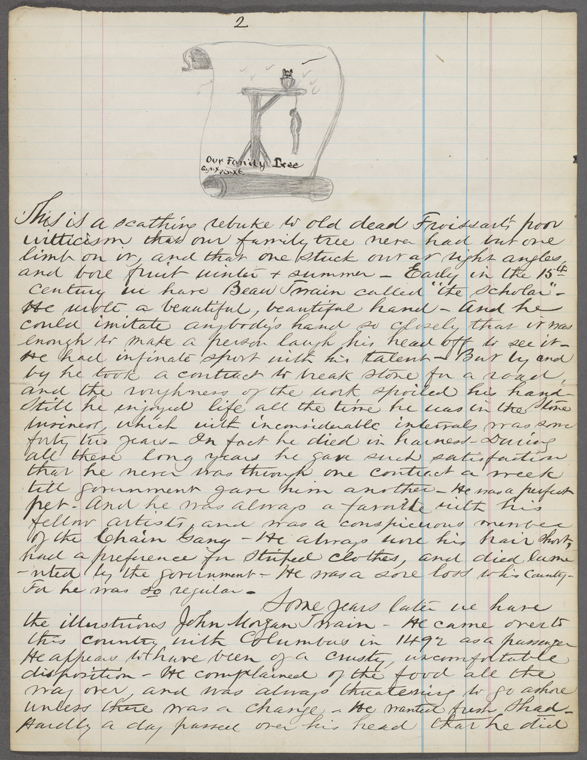 2
Our Family Tree
This is a scathing rebuke to old dead Froissart's poor
witticism that our family tree never had but one
limb on it, and that one stuck out at right angles,
and bore fruit winter & summer - Early in the 15th
century we have Beau Twain called "the scholar" -
He wrote a beautiful, beautiful hand - And he
could imitate anybodys hand so closely that it was
enough to make a person laugh his head off to see it -
He had infinate sport with his talent - But by and
by he took a contract to break stone for a road,
and the roughness of the work spoiled his hand -
Still he enjoyed life all the time he was in the stone
business, which with inconsiderable intervals, was some
forty two years - In fact he died in harness - During
all these long years he gave such satisfaction
that he never was through one contract a week
till government gave him another - He was a perfect
pet - And he was always a favorite with his
fellow artists, and was a conspicuous member
of the Chain Gang - He always wore his hair short,
had a preference for striped clothes, and died lame
-nted by the government - He was a sore loss to his County -
For he was so regular -
Some years later we have
the illustrious John Morgan Twain - He came over to
this country with Columbus in 1492 as a passenger
He appears to have been of a crusty, uncomfortable
disposition - He complained of the food all the
way over, and was always threatening to go ashore
unless there was a change - He wanted fresh shad -
Hardly a day passed over his head that he did